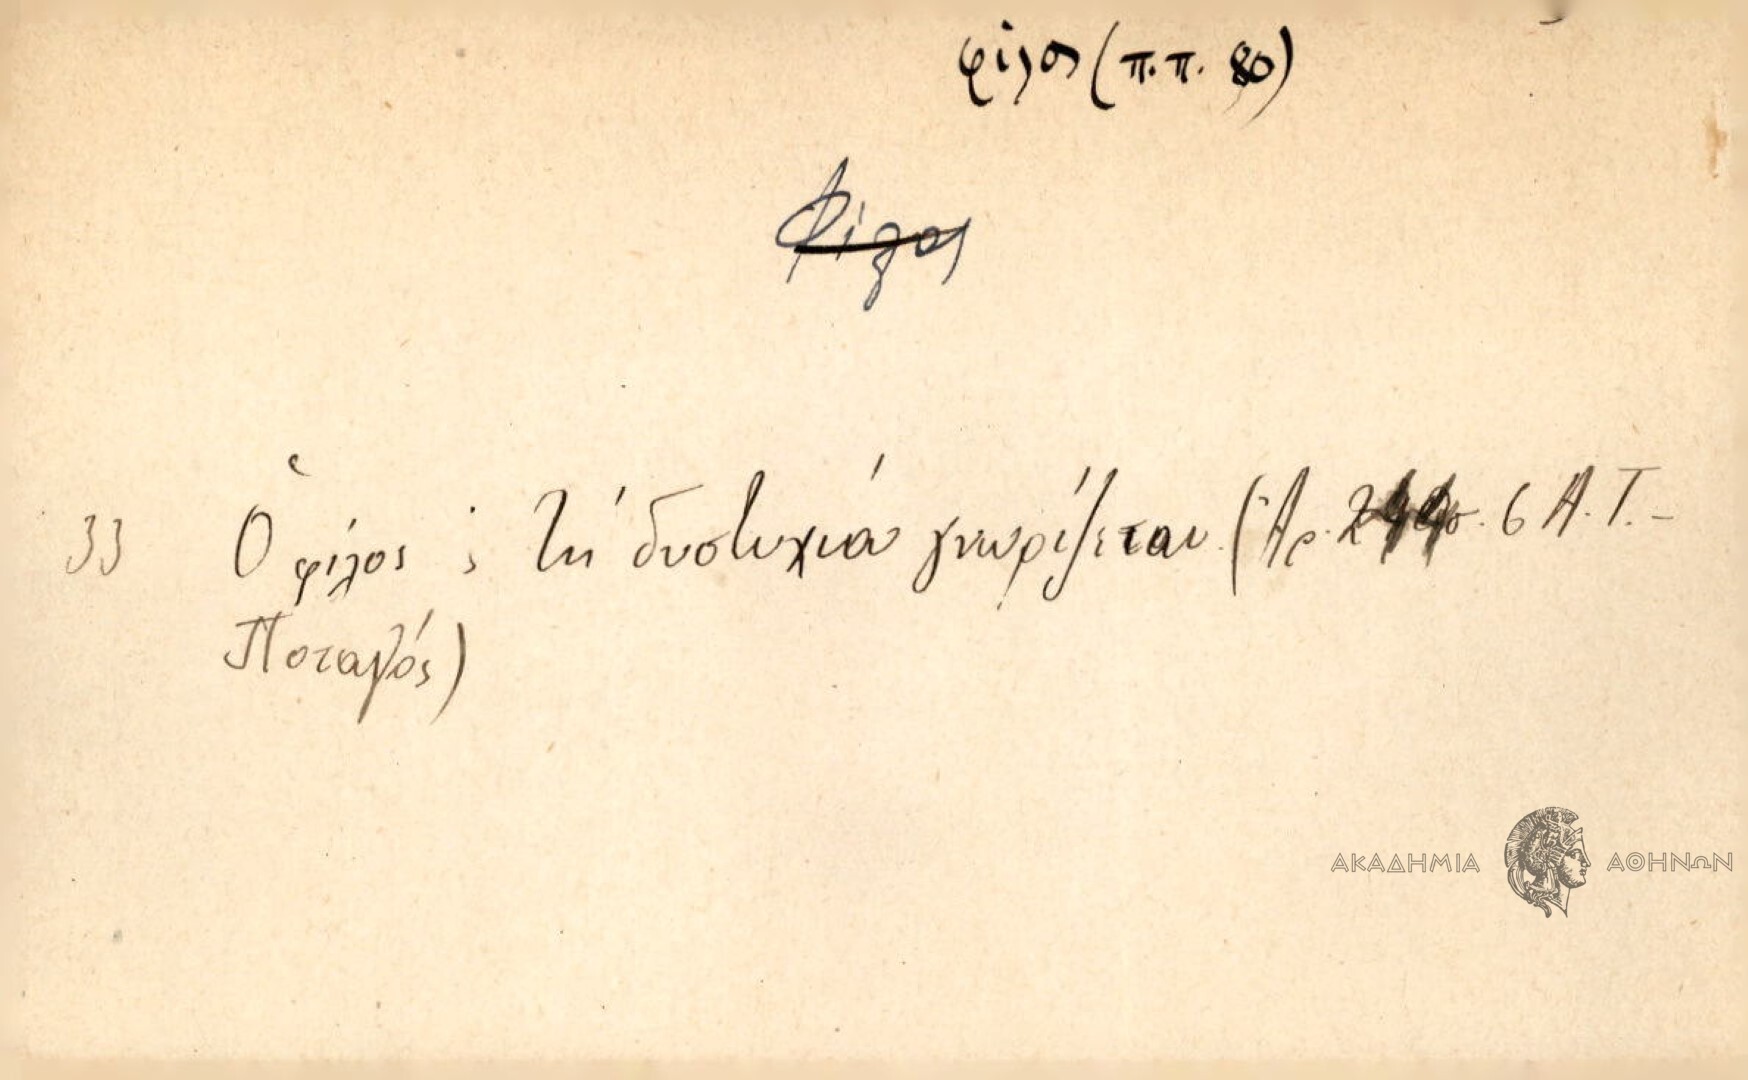 φίλος (π.π. 80)
Φίλος
33 Ὁ φίλος ς τη δυστυχιά γνωρίζεται. (Αρ. σ. 6 Α.Τ.–
Ποταμός)
ΑΚΑΔΗΜΙΑ ΑΘΗΝΩΝ